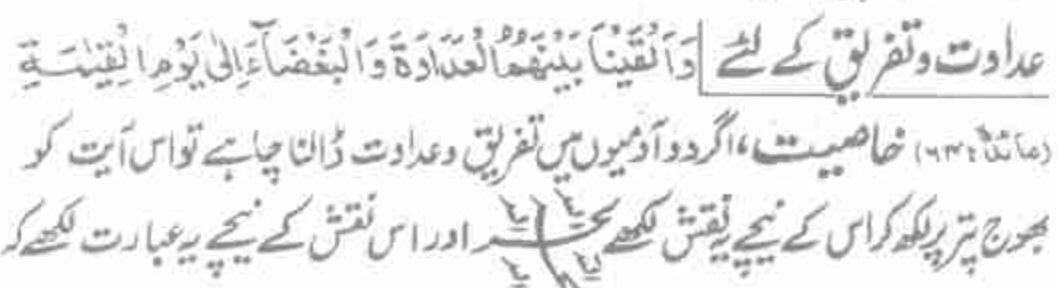 عداوت و تفریق کے لئے وَاَلْقَیْنَا بَیْنَهُمُ الْعَدَاوَةَ وَالْبَغْضَآءَ اِلٰی یَوْمِ الْقِیٰمَةِ
(مائدہ: ۶۴) خاصیت، اگر دو آدمیوں میں تفریق و عداوت ڈالنا چاہے تو اس آیت کو
بھوج پتر پر لکھ کر اس کے نیچے یہ نقش لکھے اور اس نقش کے نیچے یہ عبارت لکھے کہ